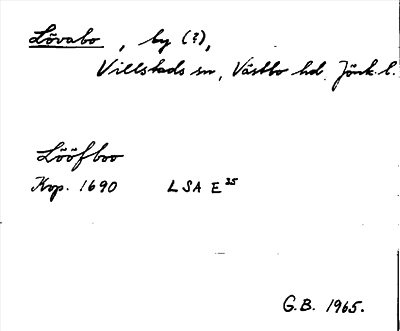 Lövabo, by (?),
Villstads sn, Västbo hd. Jönk. l.
Lööfboo
Kop. 1690 LSA E 35
G.B. 1965.